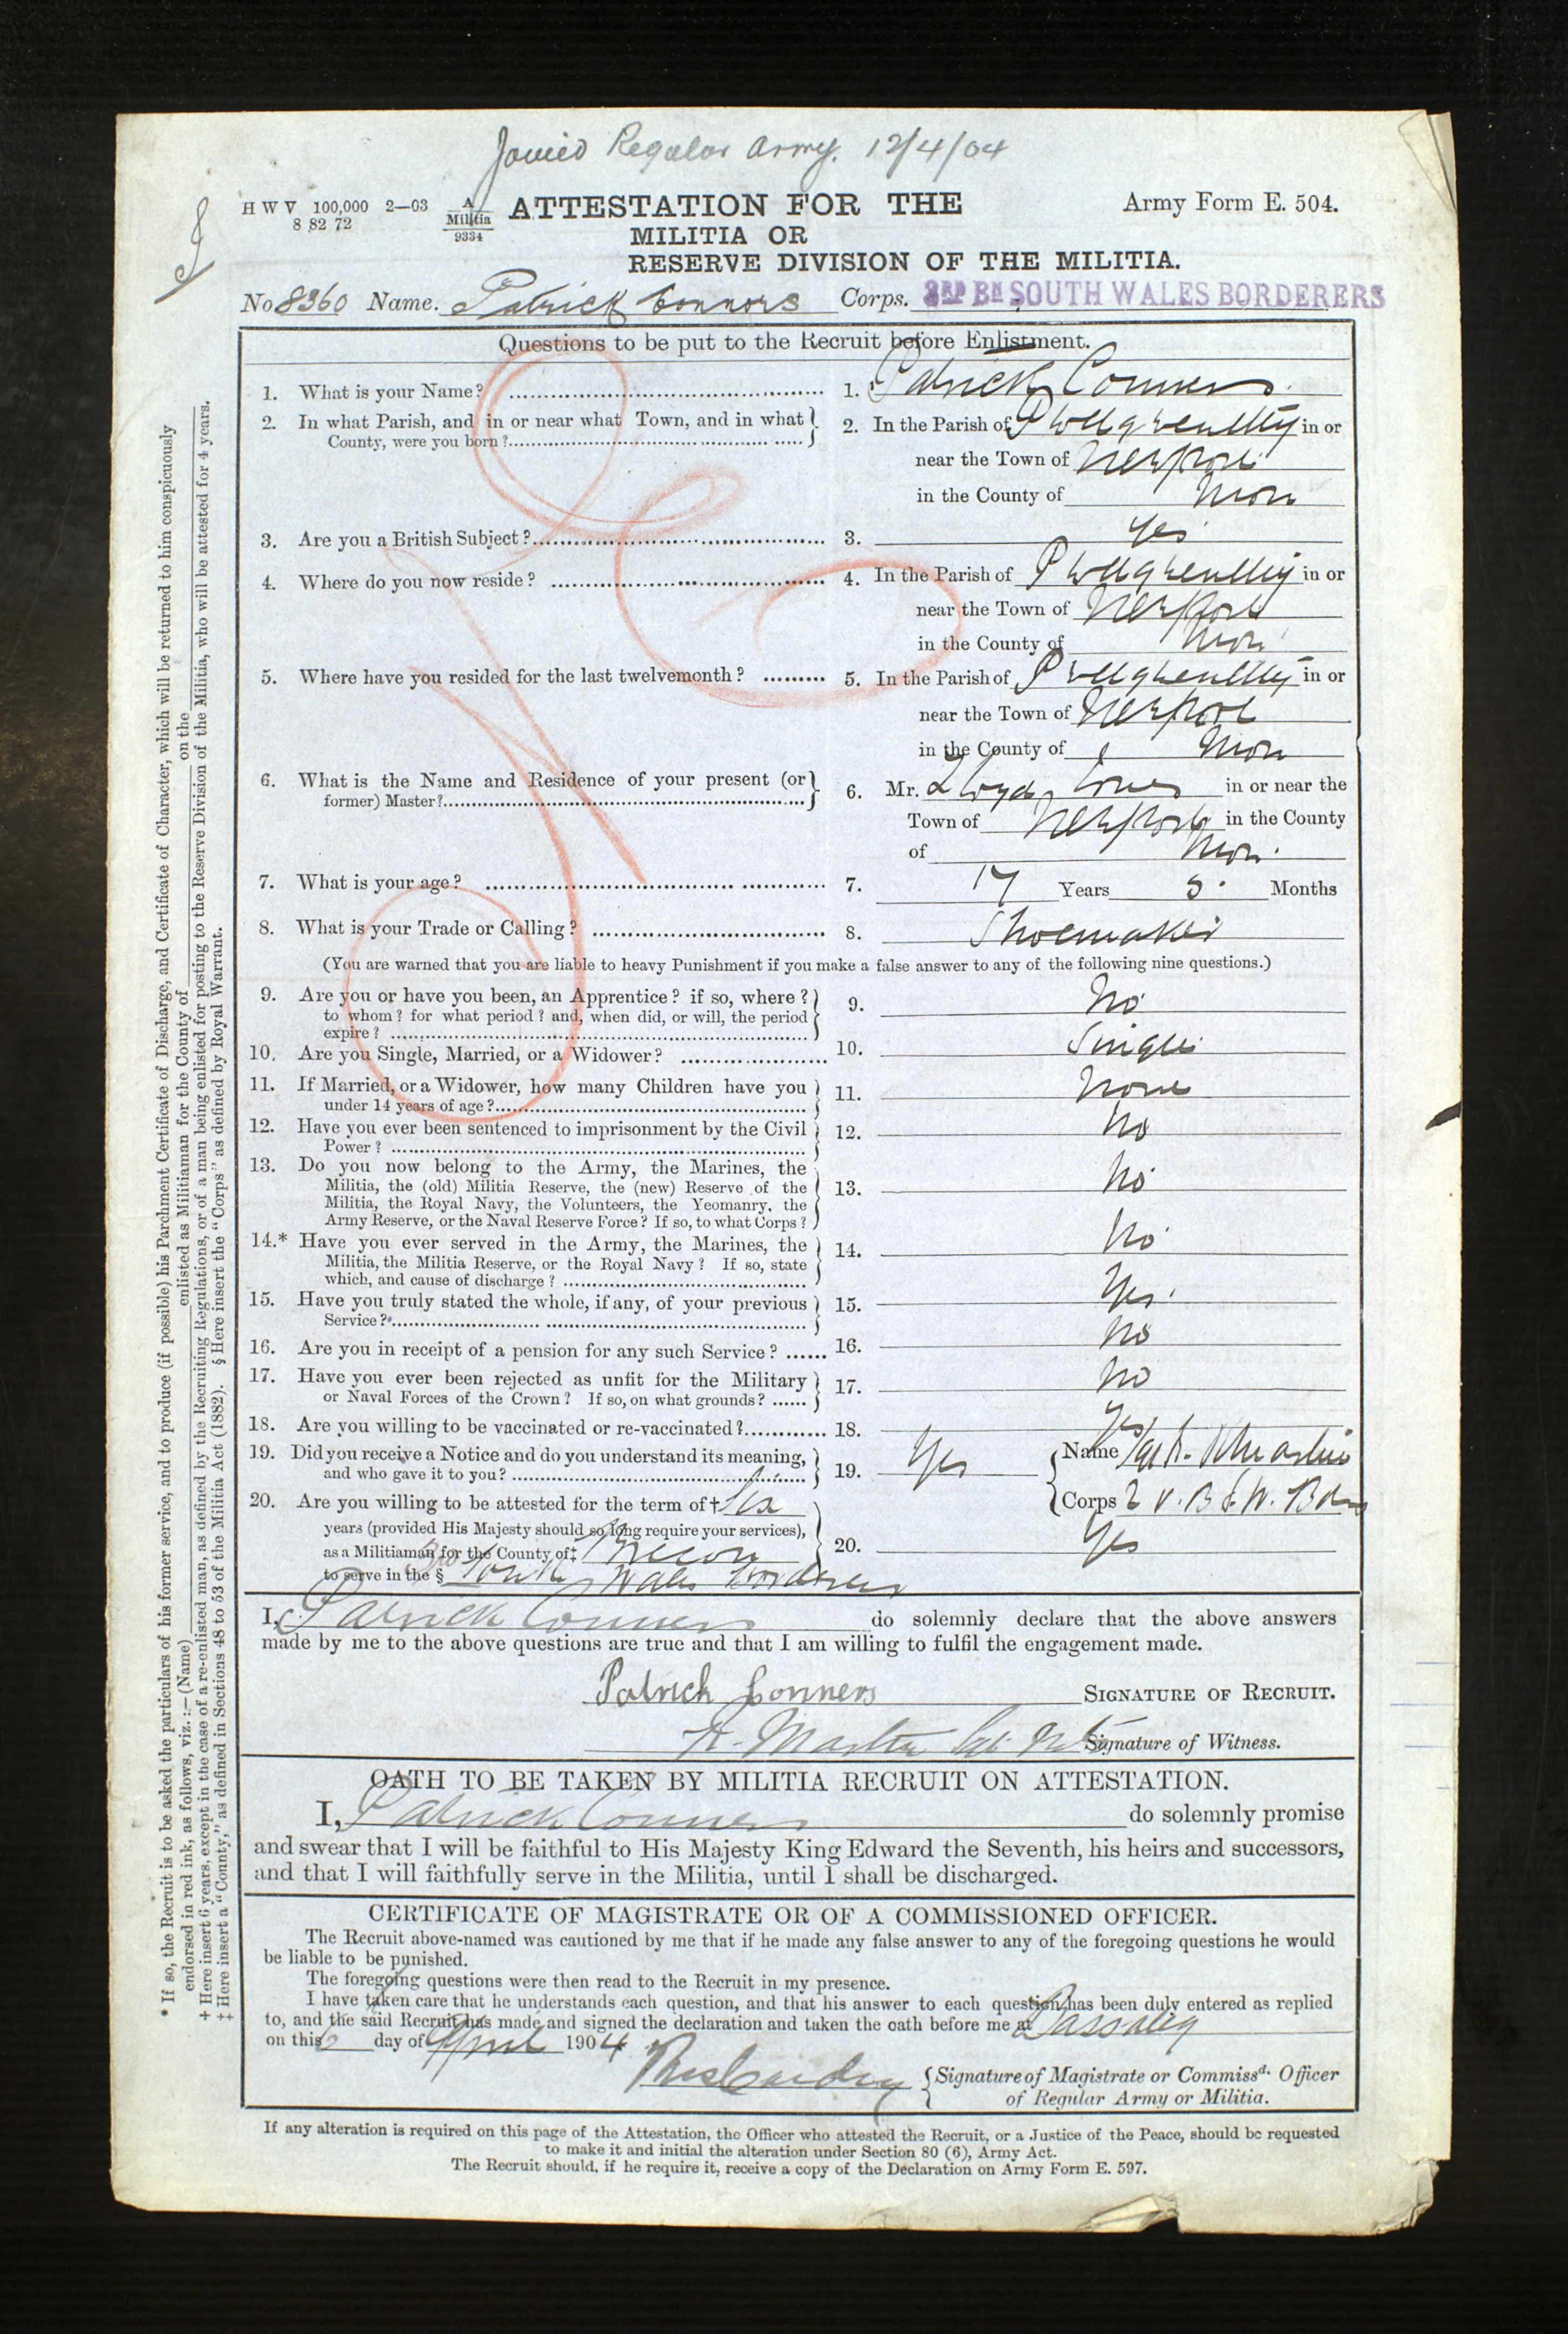 Joined Regular Army. 12/4/04
H W V 100,000 2—03 A/Militia ATTESTATION FOR THE Army Form E. 504.
8 82 72 9334
MILITIA OR
RESERVE DIVISION OF THE MILITIA.
No 8360 Name. Patrick Connors Corps. 3RD BN SOUTH WALES BORDERERS
Questions to be put to the Recruit before Enlistment.
1. What is your Name? 1. Patrick Conners
2. In what Parish, and in or near what Town, and in what 2. In the Parish of in or
County, were you born?
near the Town of Newport
in the County of Mon
3. Are you a British Subject? 3. Yes
4. Where do you now reside? 4. In the Parish of in or
near the Town of Newport
in the County of Mon
5. Where have you resided for the last twelvemonth? 5. In the Parish of in or
near the Town of Newport
in the County of Mon
6. What is the Name and Residence of your present (or 6. Mr. Lloyd in or near the
former) Master?
Town of Newport in the County
of Mon.
7. What is your age? 7. 17 Years 5 Months
8. What is your Trade or Calling? 8. Shoemaker
(You are warned that you are liable to heavy Punishment if you make a false answer to any of the following nine questions.)
9. Are you or have you been, an Apprentice? if so, where? 9. No
to whom? for what period? and, when did, or will, the period
expire?
10. Are you Single, Married, or a Widower? 10. Single
11. If Married, or a Widower, how many Children have you 11. None
under 14 years of age?
12. Have you ever been sentenced to imprisonment by the Civil 12. No
Power?
13. Do you now belong to the Army, the Marines, the 13. No
Militia, the (old) Militia Reserve, the (new) Reserve of the
Militia, the Royal Navy, the Volunteers, the Yeomanry, the
Army Reserve, or the Naval Reserve Force? If so, to what Corps?
14.* Have you ever served in the Army, the Marines, the 14. No
Militia, the Militia Reserve, or the Royal Navy? If so, state
which, and cause of discharge?
15. Have you truly stated the whole, if any, of your previous 15. Yes.
Service?
16. Are you in receipt of a pension for any such Service? 16. No
17. Have you ever been rejected as unfit for the Military 17. No
or Naval Forces of the Crown? If so, on what grounds?
18. Are you willing to be vaccinated or re-vaccinated? 18. Yes
19. Did you receive a Notice and do you understand its meaning, 19. Yes Name
and who gave it to you?
Corps 2 V. B S. W. Bdrs
20. Are you willing to be attested for the term of † Six
years (provided His Majesty should so long require your services), 20. Yes
as a Militiaman for the County of‡ Brecon
to serve in the § South Wales Borderers
I, Patrick Conners do solemnly declare that the above answers
made by me to the above questions are true and that I am willing to fulfil the engagement made.
Patrick Conners SIGNATURE OF RECRUIT.
Signature of Witness.
OATH TO BE TAKEN BY MILITIA RECRUIT ON ATTESTATION.
I, Patrick Conners do solemnly promise
and swear that I will be faithful to His Majesty King Edward the Seventh, his heirs and successors,
and that I will faithfully serve in the Militia, until I shall be discharged.
CERTIFICATE OF MAGISTRATE OR OF A COMMISSIONED OFFICER.
The Recruit above-named was cautioned by me that if he made any false answer to any of the foregoing questions he would
be liable to be punished.
The foregoing questions were then read to the Recruit in my presence.
I have taken care that he understands each question, and that his answer to each question has been duly entered as replied
to, and the said Recruit has made and signed the declaration and taken the oath before me at Bassaleg
on this 6 day of April 1904
Signature of Magistrate or Commissd. Officer
of Regular Army or Militia.
If any alteration is required on this page of the Attestation, the Officer who attested the Recruit, or a Justice of the Peace, should be requested
to make it and initial the alteration under Section 80 (6), Army Act.
The Recruit should, if he require it, receive a copy of the Declaration on Army Form E. 597.
* If so, the Recruit is to be asked the particulars of his former service, and to produce (if possible) his Parchment Certificate of Discharge, and Certificate of Character, which will be returned to him conspicuously
endorsed in red ink, as follows, viz. :— (Name) enlisted as Militiaman for the County of on the
† Here insert 6 years, except in the case of a re-enlisted man, as defined by the Recruiting Regulations, or of a man being enlisted for posting to the Reserve Division of the Militia, who will be attested for 4 years.
‡ Here insert a "County," as defined in Sections 48 to 53 of the Militia Act (1882). § Here insert the "Corps" as defined by Royal Warrant.